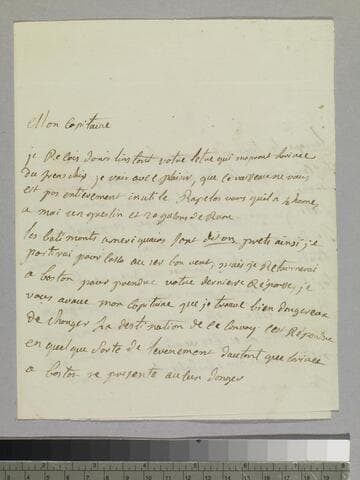 Mon Capitaine
je Recois dans linstant votre lettre qui
du je vois avec plaisir, que ce vaisseau ne vous
est pas entierement inutile Rapelez vous quil a
a moi un quintin et 20 galons de Rome
les batiments ameriquains sont dit on prets ainsi je
partirai pour au 1er bon vent, mais je Retournerai
a boston pour prendre votre derniere Réponse, je
vous avoue mon Capitaine que je trouve bien dangereux
de changer la destination de ce Convoy cest Répondre
en quelque sorte de levenement dautant que
a boston ne presente aucun danger